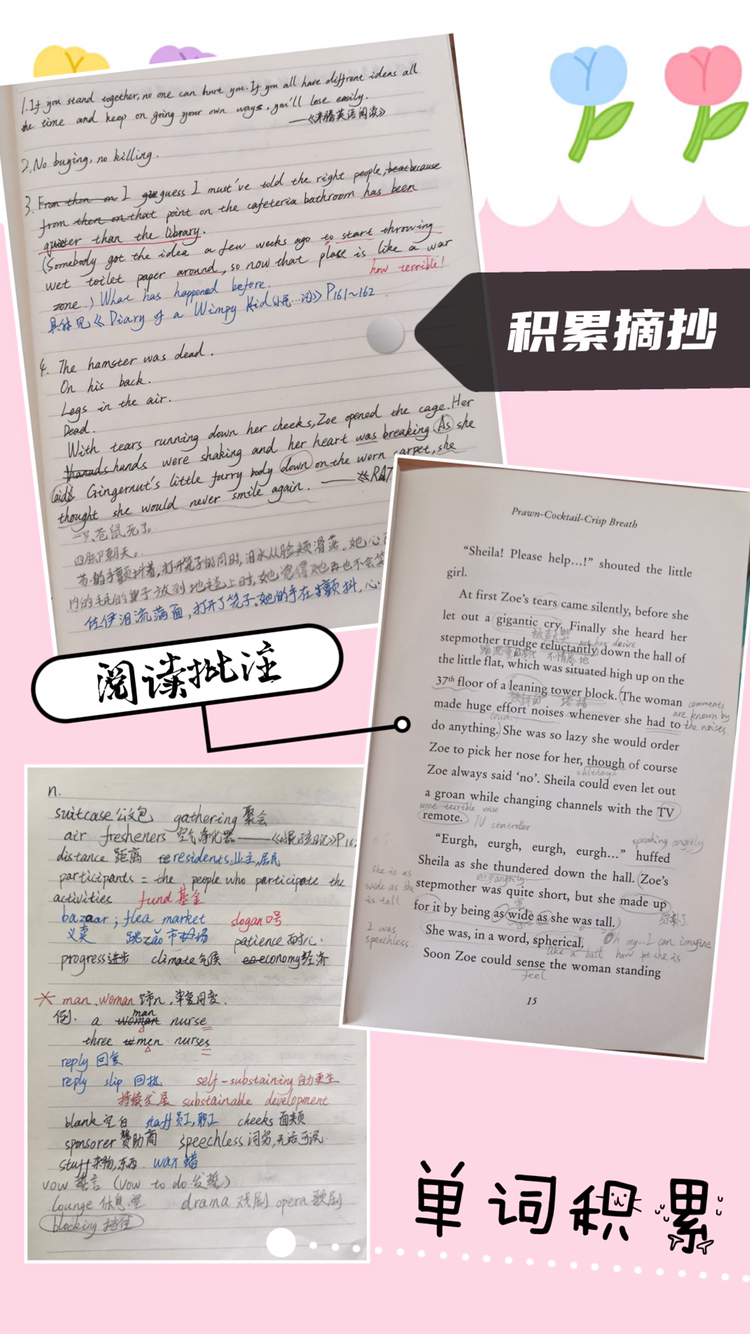 1. If you stand together, no one can hurt you. If you all have different ideas all
the time and keep on going your own ways, you'll lose easily.
2. No buging, no killing.
3. From then on I guess I must've told the right people, because
from then on that point on the cafeteria bathroom has been
quieter than the library.
(Somebody got the idea a few weeks ago to start throwing
wet toilet paper around, so now that place is like a war
zone.) What has happened before.
how terrible!
具体见《Diary of a Wimpy Kid》P161~162
积累摘抄
4. The hamster was dead.
On his back.
Legs in the air.
Dead.
With tears running down her cheeks, Zoe opened the cage. Her
hands were shaking and her heart was breaking. As she
laid Gingernut's little furry body down on the worn carpet, she
thought she would never smile again. ——《RAT
一只仓鼠死了
四脚朝天。
佐伊泪流满面,打开了笼子。她的手在颤抖,心
阅读批注
Prawn-Cocktail-Crisp Breath
“Sheila! Please help...!” shouted the little
girl.
At first Zoe's tears came silently, before she
let out a gigantic cry. Finally she heard her
stepmother trudge reluctantly down the hall of
不情愿地
the little flat, which was situated high up on the
37th floor of a leaning tower block. The woman
made huge effort noises whenever she had to
comments
are known by
the noises.
do anything. She was so lazy she would order
Zoe to pick her nose for her, though of course
Zoe always said ‘no’. Sheila could even let out
a groan while changing channels with the TV
remote.
TV controller
“Eurgh, eurgh, eurgh, eurgh...” huffed
speaking angrily
Sheila as she thundered down the hall. Zoe's
stepmother was quite short, but she made up
for it by being as wide as she was tall.
she is as
wide as she
is tall
She was, in a word, spherical.
like a ball
Oh my, I can imagine
I was
speechless
Soon Zoe could sense the woman standing
feel
15
n.
suitcase 公文包 gathering 聚会
air fresheners 空气净化器
distance 距离 residents 业主,居民
participants = the people who participate the
activities fund 基金
bazaar ; flea market slogan 口号
义卖 跳zǎo市场 patience 耐心
progress 进步 climate 气候 economy 经济
man, woman
例. a man nurse
three men nurses
reply 回复
reply slip 回执 self-substaining 自力更生
持续发展 substainable development
blank 空白 staff 员工,职工 cheeks 面颊
sponsorer 赞助商 speechless 词穷,无话可说
stuff 杂物,东西 wax 蜡
vow 誓言 (vow to do 发誓)
lounge 休息室 drama 戏剧 opera 歌剧
blocking 挡住
单词积累